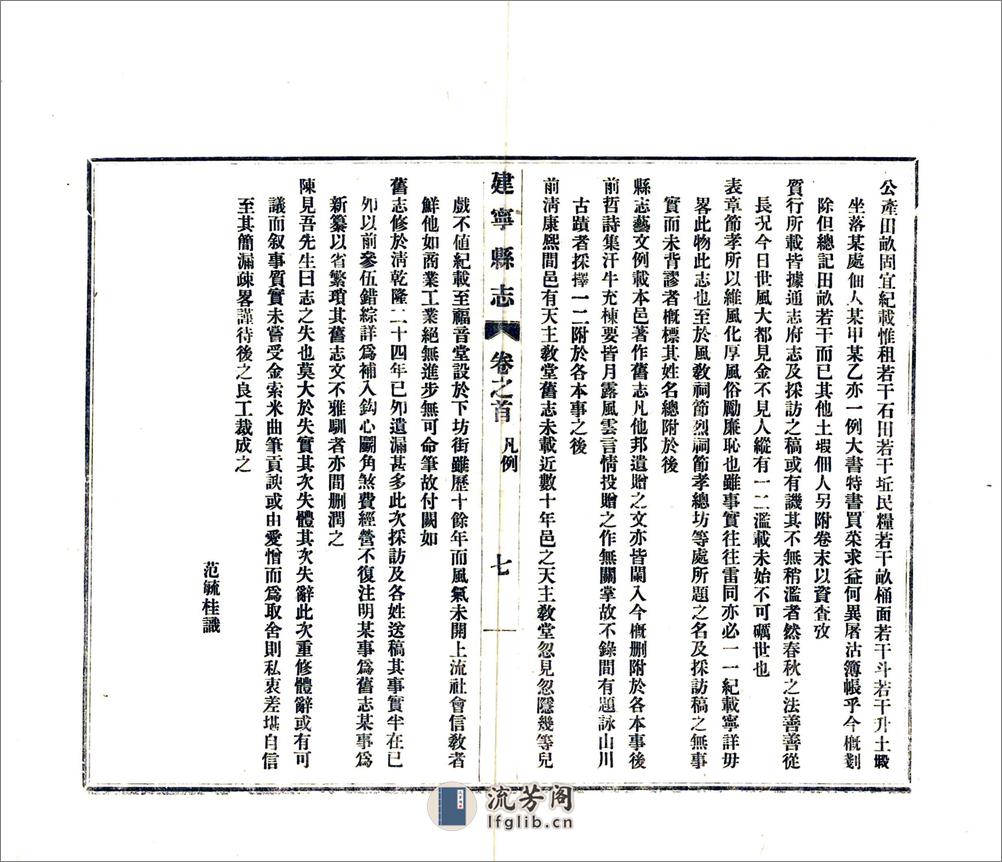 公產田畝固宜紀載惟租若干石田若干坵民糧若干畝桶面若干斗若干升土煅
坐落某處佃人某甲某乙亦一例大書特書買菜求益何異屠沽簿帳乎今槪剗
除但總記田畝若干而已其他土瑕佃人另附卷末以資查攷
質行所載皆據通志府志及採訪之稿或有譏其不無稍濫者然春秋之法善善從
長況今日世風大都見金不見人縱有一二濫載未始不可礪世也
表章節孝所以維風化厚風俗勵廉恥也雖事實往往雷同亦必一一紀載寧詳毋
畧此物此志也至於風敎祠節烈祠節孝總坊等處所題之名及採訪稿之無事
實而未背謬者槪標其姓名總附於後
縣志藝文例載本邑著作舊志凡他邦遺贈之文亦皆闌入今槪删附於各本事後
前哲詩集汗牛充棟要皆月露風雲言情投贈之作無關掌故不錄間有題詠山川
古蹟者採擇一二附於各本事之後
前淸康熙間邑有天主敎堂舊志未載近數十年邑之天主敎堂忽見忽隱幾等兒
建寧縣志
卷之首
凡例
七
戲不値紀載至福音堂設於下坊街雖歷十餘年而風氣未開上流社會信敎者
鮮他如商業工業絕無進步無可命筆故付闕如
舊志修於淸乾隆二十四年己夘遺漏甚多此次採訪及各姓送稿其事實半在已
夘以前參伍錯綜詳爲補入鈎心鬭角煞費經營不復注明某事爲舊志某事爲
新纂以省繁瑣其舊志文不雅馴者亦間删潤之
陳見吾先生曰志之失也莫大於失實其次失體其次失辭此次重修體辭或有可
議而叙事質實未嘗受金索米曲筆貢諛或由愛憎而爲取舍則私衷差堪自信
至其簡漏疎畧謹待後之良工裁成之
范毓桂識
流芳阁
lfglib.cn